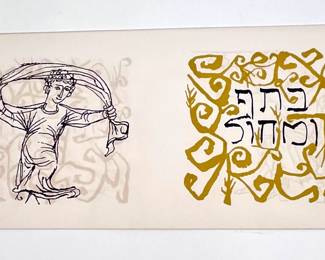 בתף
ומחול